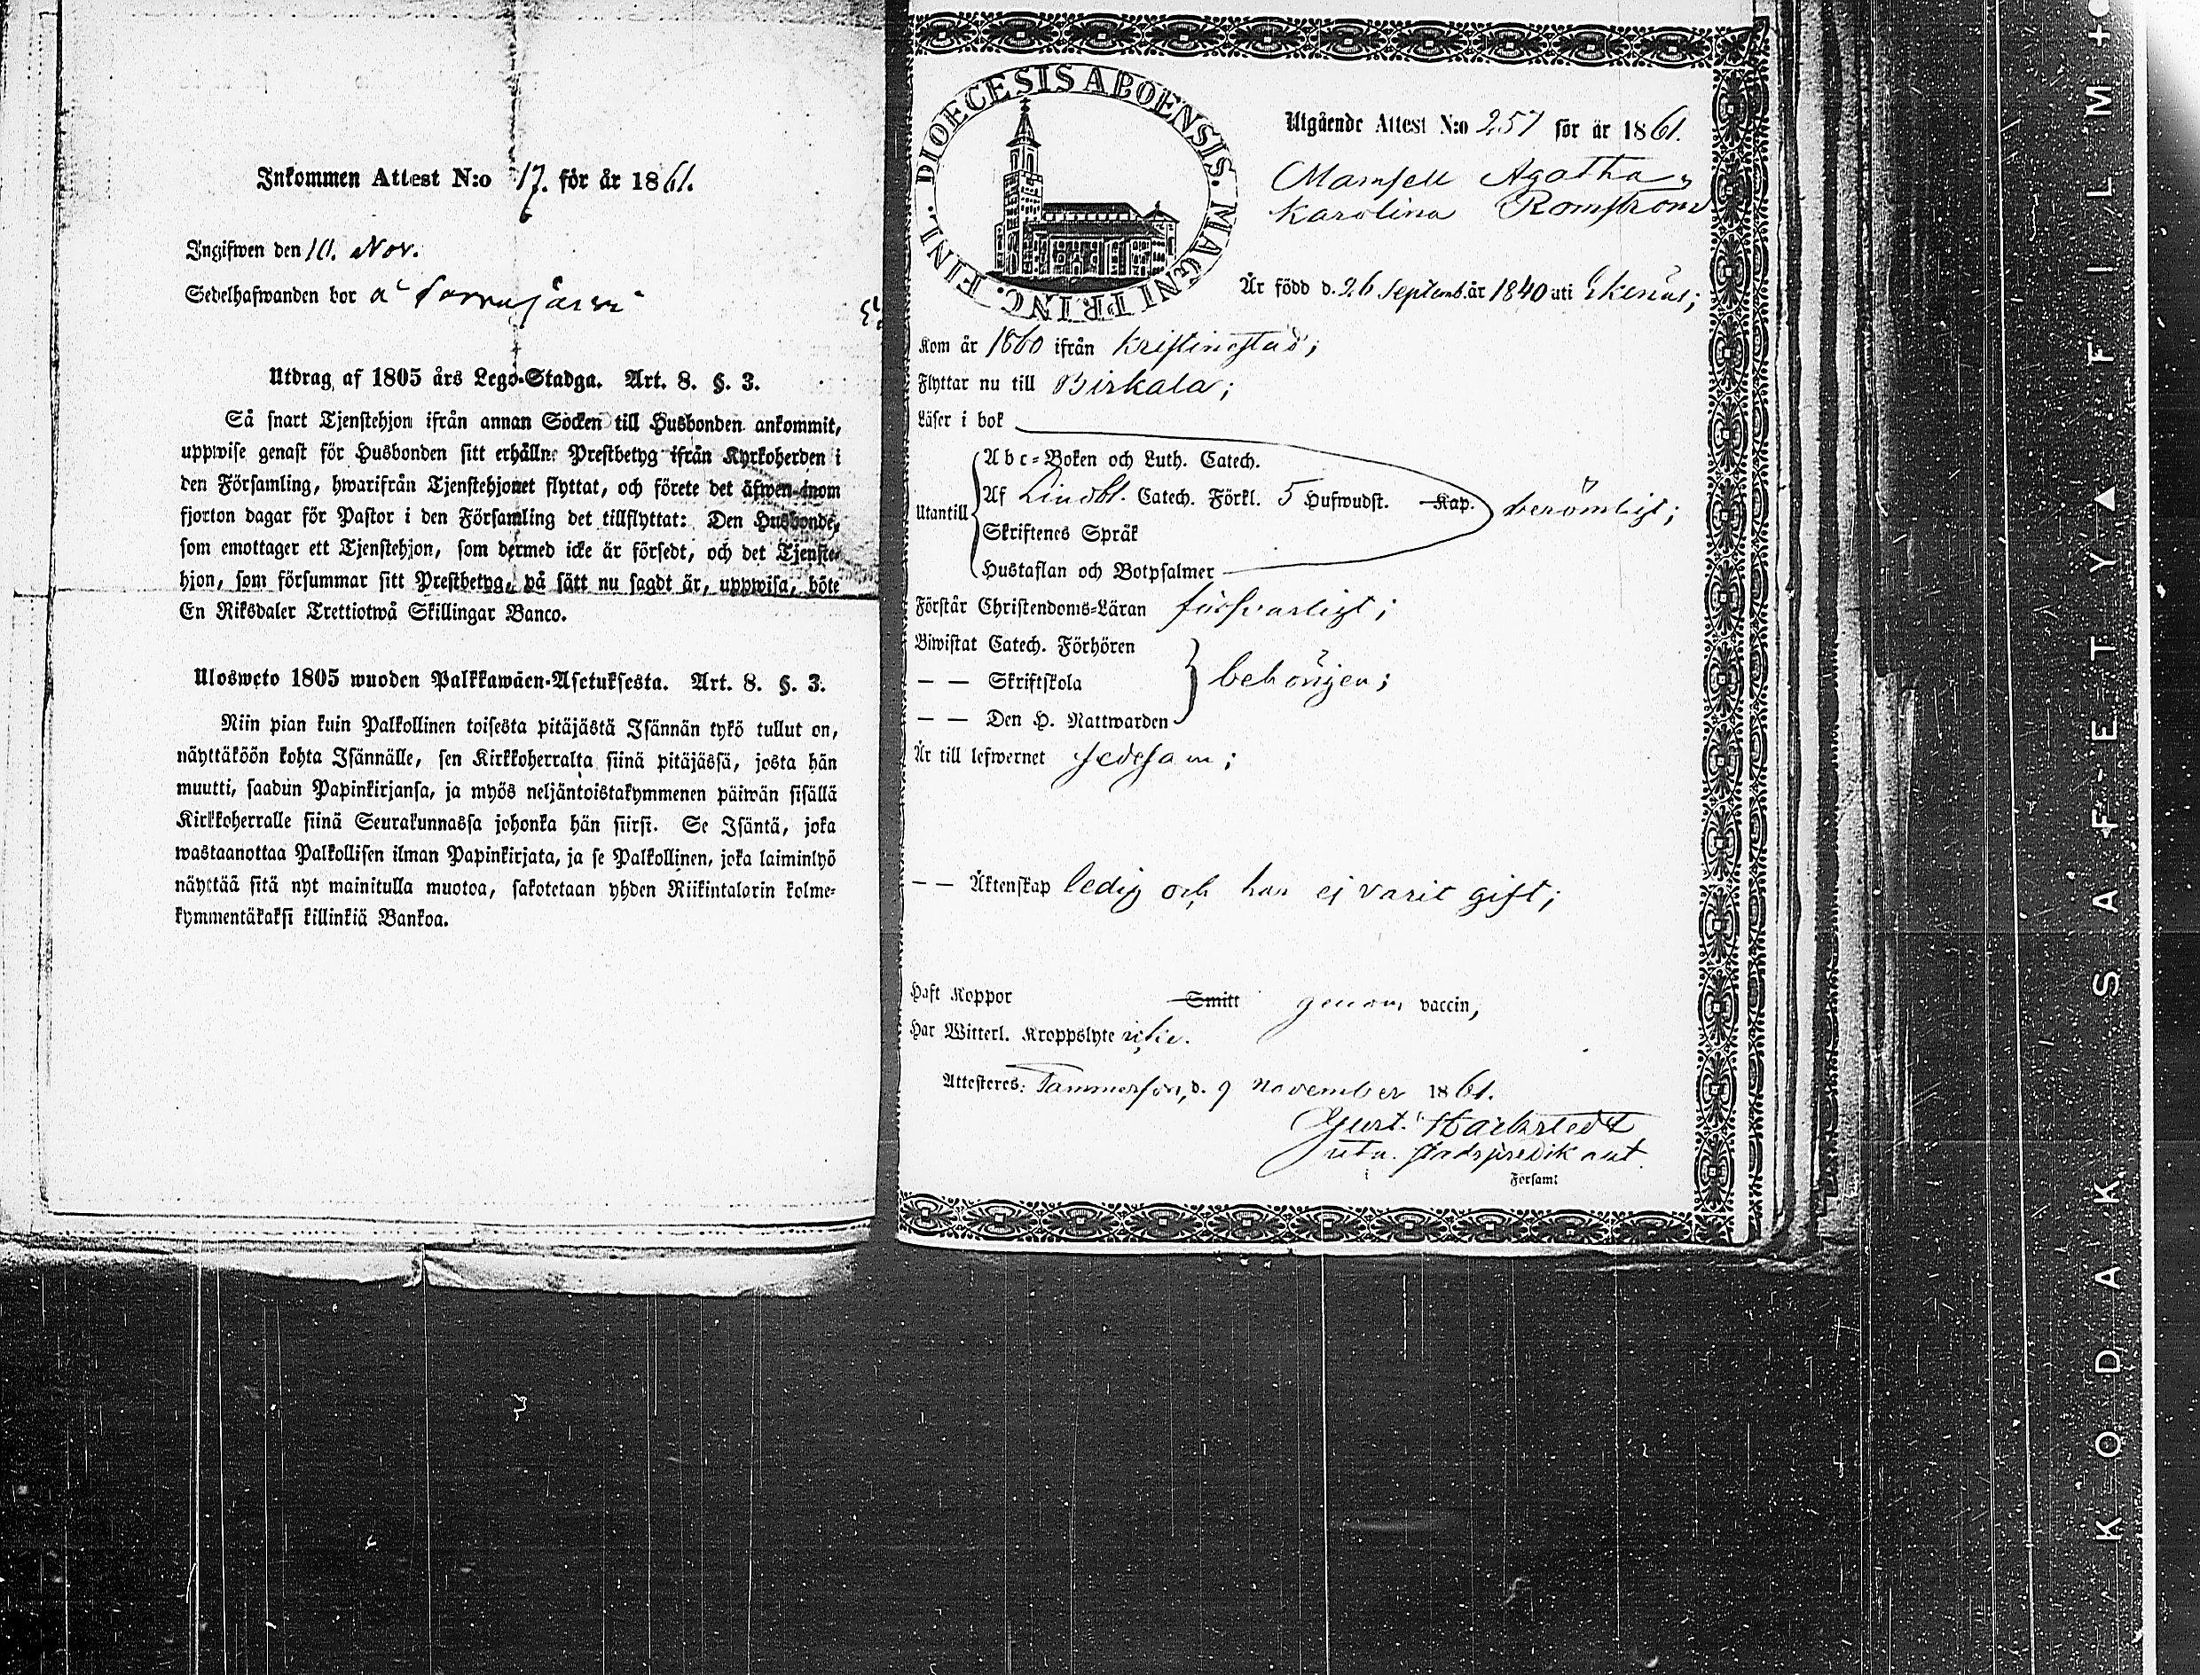 Inkommen Attest N:o 17. för år 1861.
Ingifwen den 10. Nov.
Sedelhafwanden bor å
Utdrag af 1805 års Lego-Stadga. Art. 8. §. 3.
Så snart Tjenstehjon ifrån annan Socken till Husbonden ankommit,
uppwise genast för Husbonden sitt erhållne Prestbetyg ifrån Kyrkoherden i
den Församling, hwarifrån Tjenstehjonet flyttat, och förete det äfwen inom
fjorton dagar för Pastor i den Församling det tillflyttat: Den Husbonde,
som emottager ett Tjenstehjon, som dermed icke är försedt, och det Tjenste-
hjon, som försummar sitt Prestbetyg, på sätt nu sagdt är, uppwisa, böte
En Riksdaler Trettiotwå Skillingar Banco.
Ulosweto 1805 wuoden Palkkawäen-Asetuksesta. Art. 8. §. 3.
Niin pian kuin Palkollinen toisesta pitäjästä Isännän tykö tullut on,
näyttäköön kohta Isännälle, sen Kirkkoherralta siinä pitäjässä, josta hän
muutti, saadun Papinkirjansa, ja myös neljäntoistakymmenen päiwän sisällä
Kirkkoherralle siinä Seurakunnassa johonka hän siirsi. Se Isäntä, joka
wastaanottaa Palkollisen ilman Papinkirjata, ja se Palkollinen, joka laiminlyö
näyttää sitä nyt mainitulla muotoa, sakotetaan yhden Riikintalarin kolme-
kymmentäkaksi killinkiä Bankoa.
DIOECESIS ABOENSIS. MAGNI PRINC. FINL.
Utgående Attest N:o 257 för år 1861.
Mamsell Agatha
Karolina Romström
Är född d. 26 Septemb. år 1840 uti Ekenäs;
Kom år 1860 ifrån Kristinestad;
Flyttar nu till Birkala;
Läser i bok
Abc-Boken och Luth. Catech.
Utantill Af Lindbl. Catech. Förkl. 5 Hufwudst. Kap. berömligt;
Skriftenes Språk
Hustaflan och Botpsalmer
Förstår Christendoms-Läran försvarligt;
Biwistat Catech. Förhören
— — Skriftskola behörigen;
— — Den H. Nattwarden
Är till lefwernet sedesam;
— — Äktenskap ledig och har ej varit gift;
Haft Koppor Smitt genom vaccin,
Har Witterl. Kroppslyte icke.
Attesteras: Tammerfors, d. 9 November 1861.
Gust.
stadspredikant
Forsaml
KODAK SAFETY▲FILM +